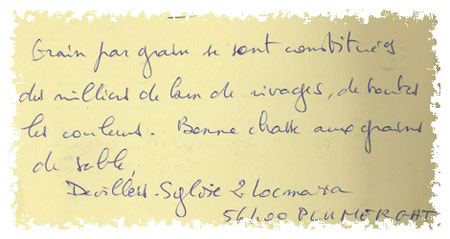 Grain par grain se sont constitués
des milliers de km de rivages, de toutes
les couleurs. Bonne chasse aux grains
de sable,
Devillers Sylvie 2 Locmaria
56400 PLUMERGAT